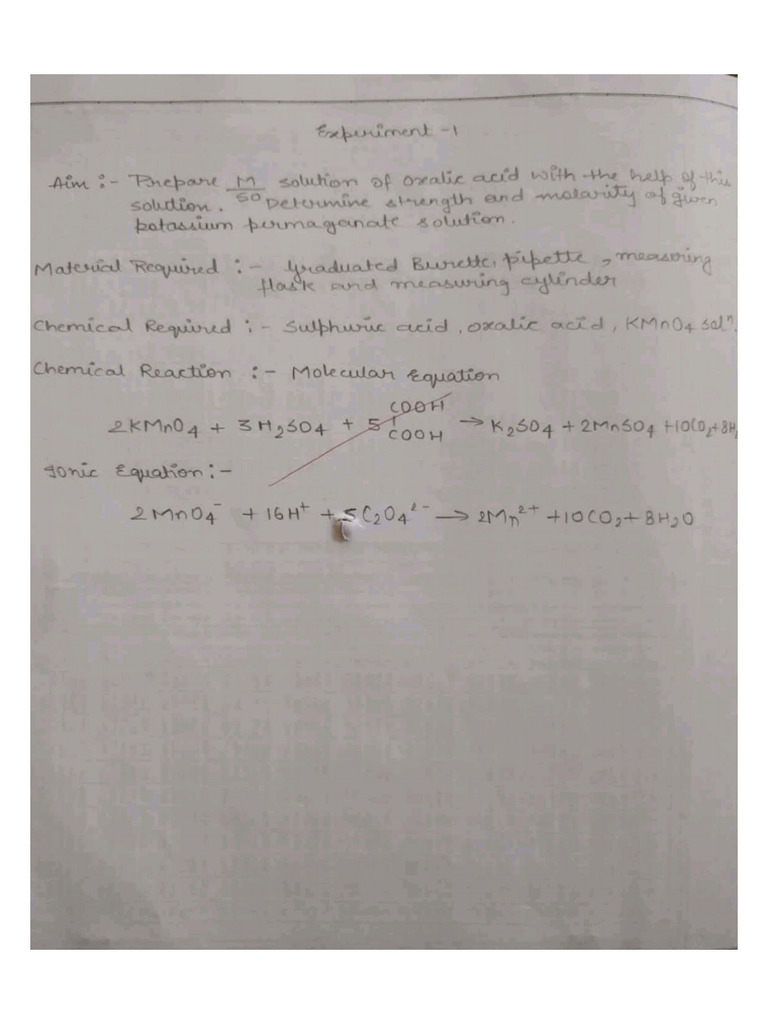 Experiment -1
Aim :- Prepare M/50 solution of oxalic acid with the help of this
solution. Determine strength and molarity of given
potassium permaganate solution.
Material Required :- Graduated Burette, pipette, measuring
flask and measuring cylinder
Chemical Required :- Sulphuric acid, oxalic acid, KMnO4 solⁿ.
Chemical Reaction :- Molecular Equation
2KMnO4 + 3H2SO4 + 5 COOH COOH → K2SO4 + 2MnSO4 + 10CO2 + 8H2
Ionic Equation :-
2MnO4⁻ + 16H⁺ + 5C2O4²⁻ → 2Mn²⁺ + 10CO2 + 8H2O